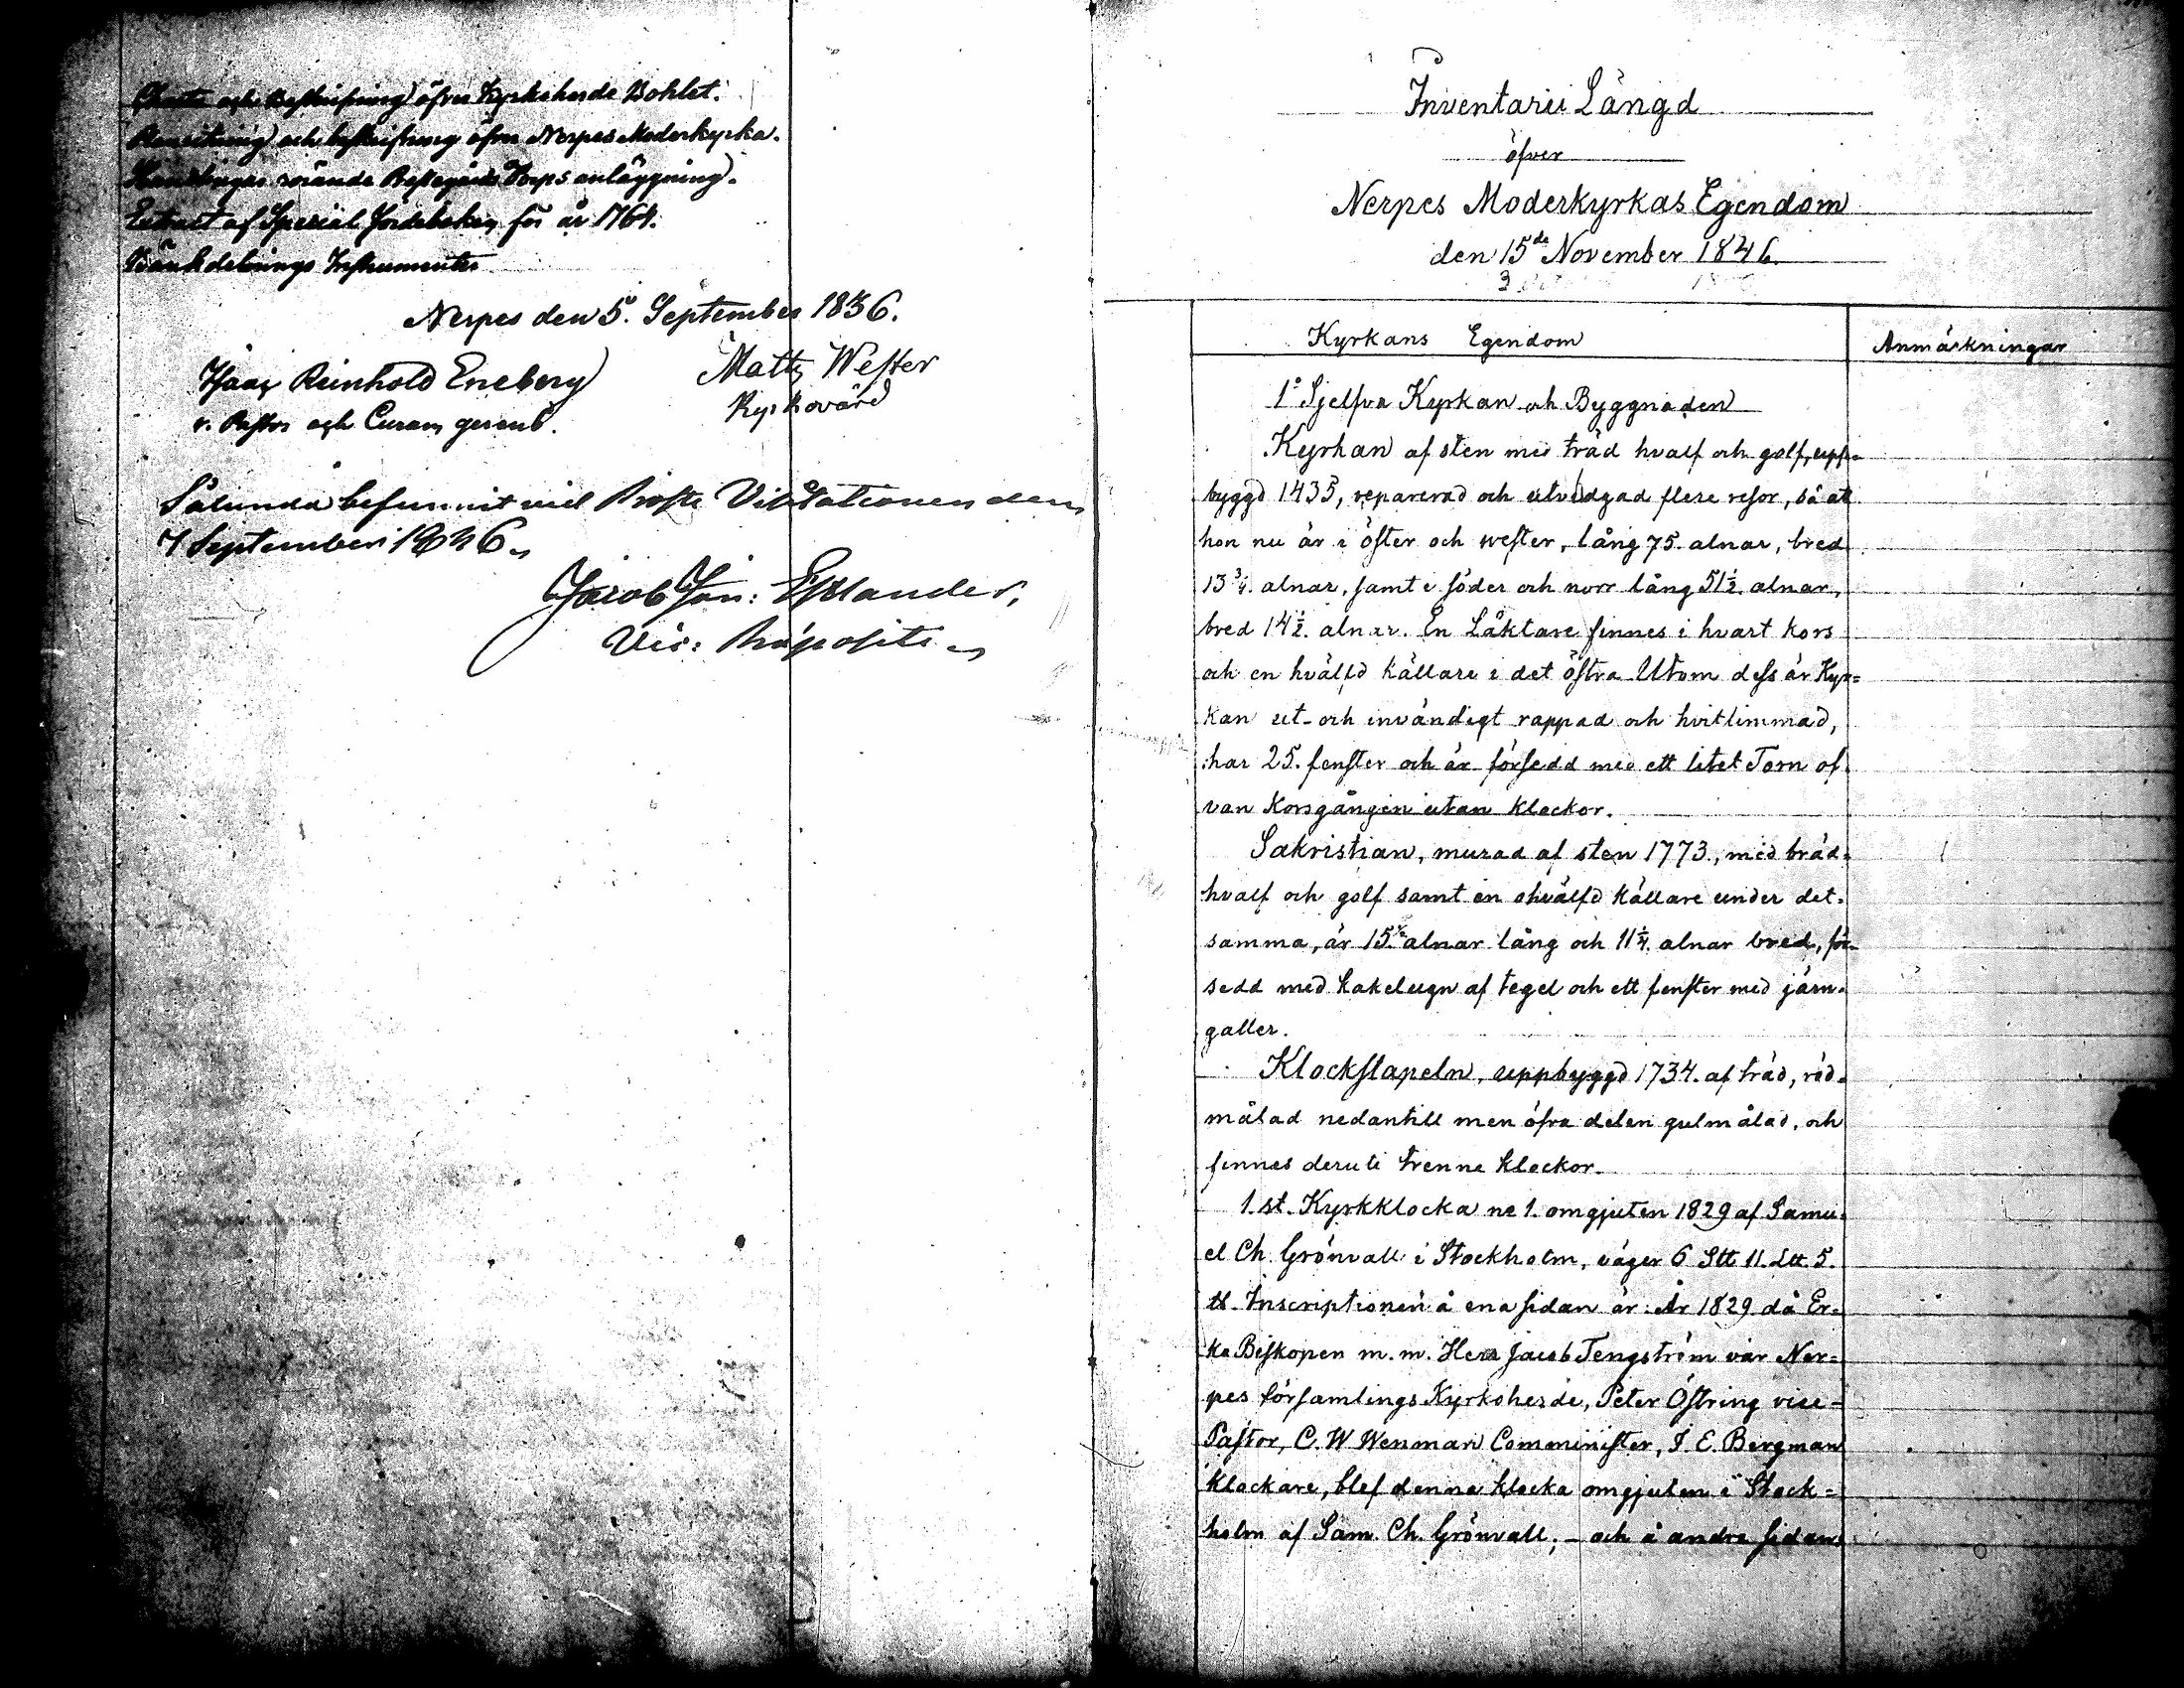 och Beskrifning öfver Kyrkoherde Bohlet.
och beskrifning öfver Nerpes Moderkyrka.
Handlingar rörande Torps anläggning.
Extract af Special Jordeboken för år 1764.
Bänkdelnings Instrumenter
Nerpes den 5. September 1836.
Isaac Reinhold Eneberg
v. Pastor och Curam gerens.
Matts Wester
Kyrkovärd
Sålunda befunnit vid Prosts Visitationen den
7 September 1836.
Jacob Jon: Estlander,
Vis: Præposits
Inventarii Längd
öfver
Nerpes Moderkyrkas Egendom
den 15de November 1846.
Kyrkans Egendom
Anmärkningar
1º Sjelfva Kyrkan och Byggnaden
Kyrkan af sten med träd hvalf och golf, upp=
byggd 1435, reparerad och utvidgad flere resor, så att
hon nu är i öster och wester, lång 75. alnar, bred
13 3/4. alnar, samt i söder och norr lång 51 1/2. alnar,
bred 14 1/2. alnar. En Läktare finnes i hvart kors
och en hvälfd källare i det östra Utom dess är Kyr=
kan ut- och invändigt rappad och hvitlimmad,
har 25. fenster och är försedd med ett litet Torn of
van Korsgången utan klockor.
Sakristian, murad af sten 1773., med bräd=
hvalf och golf samt en ohvälfd källare under det=
samma, är 15 1/2 alnar lång och 11 1/4. alnar bred, för=
sedd med kakelugn af tegel och ett fenster med järn=
galler.
Klockstapeln, uppbyggd 1734. af träd, röd=
målad nedantill men öfra delen gulmålad, och
finnes deruti trenne klockor.
1. st. Kyrkklocka no 1. omgjuten 1829 af Samu=
el Ch. Grönvall i Stockholm, väger 6 Stt 11. Ltt 5.
tt. Inscriptionen å ena sidan är: År 1829 då Er=
ke Biskopen m. m. Herr Jacob Tengström var Ner=
pes församlings Kyrkoherde, Peter Östring vice=
Pastor, C. W Wenman Comminister, I. E. Bergman
klockare, blef denna klocka omgjuten i Stock=
holm af Sam. Ch. Grönvall; – och å andra sidan